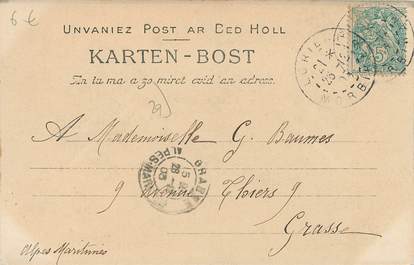 6 €
UNVANIEZ POST AR BED HOLL
KARTEN-BOST
An tu ma a zo miret evid an adres.
29
A Mademoiselle G. Baumes
9 Avenue Thiers 9
Grasse
Alpes Maritimes
GRASSE